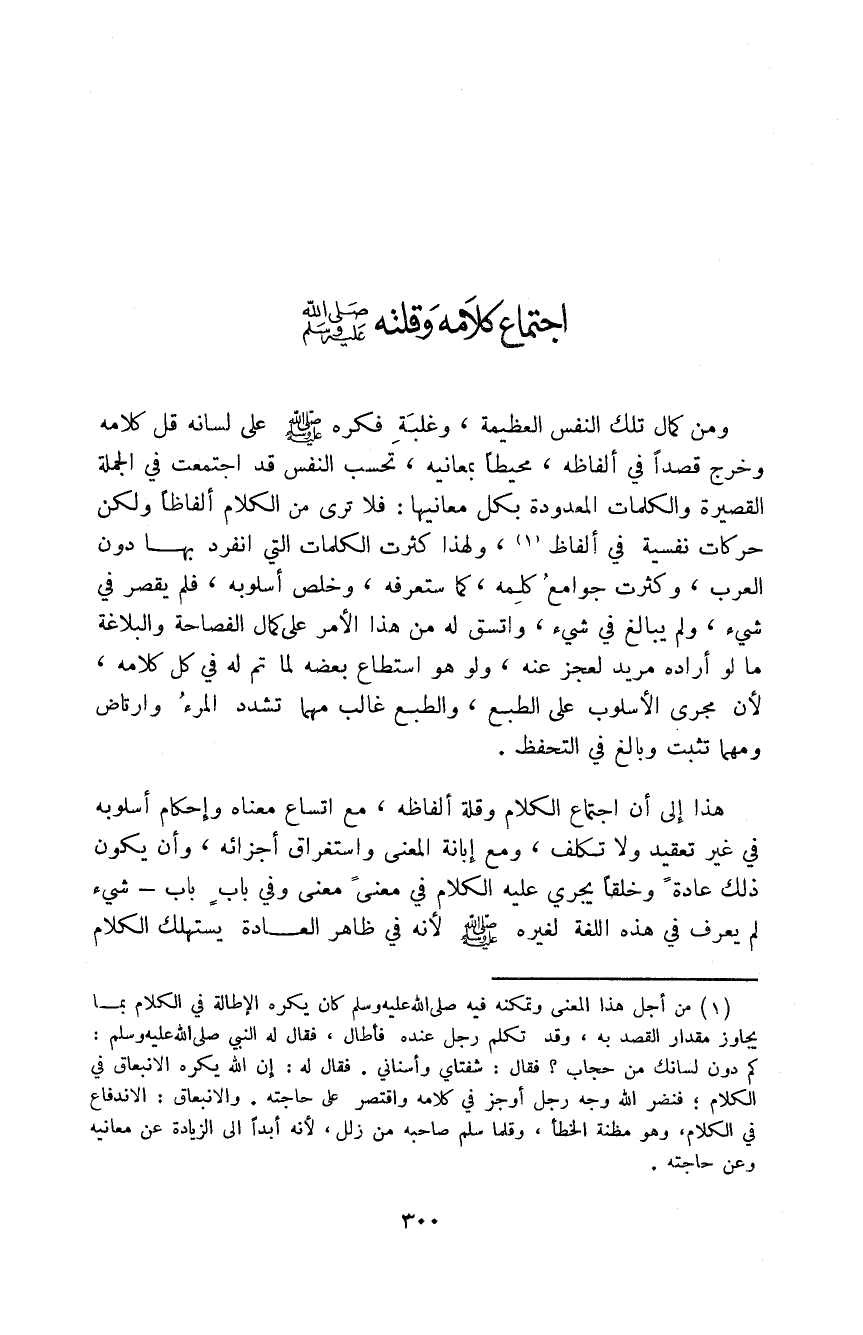 اجتماع كلامه وقلته ﷺ
ومن كمال تلك النفس العظيمة ، وغلبَةِ فكره ﷺ على لسانه قل كلامه
وخرج قصداً في ألفاظه ، محيطاً بمعانيه ، تحسب النفس قد اجتمعت في الجملة
القصيرة والكلمات المعدودة بكل معانيها : فلا ترى من الكلام ألفاظاً ولكن
حركات نفسية في ألفاظ (١) ، ولهذا كثرت الكلمات التي انفرد بهـــا دون
العرب ، وكثرت جوامعُ كلِمه ، كما ستعرفه ، وخلص أسلوبه ، فلم يقصر في
شيء ، ولم يبالغ في شيء ، واتسق له من هذا الأمر على كمال الفصاحة والبلاغة
ما لو أراده مريد لعجز عنه ، ولو هو استطاع بعضه لما تم له في كل كلامه ،
لأن مجرى الأسلوب على الطبع ، والطبع غالب مهما تشدد المرءُ وارتاض
ومهما تثبت وبالغ في التحفظ .
هذا إلى أن اجتماع الكلام وقلة ألفاظه ، مع اتساع معناه وإحكام أسلوبه
في غير تعقيد ولا تكلف ، ومع إبانة المعنى واستغراق أجزائه ، وأن يكون
ذلك عادةً وخلقاً يجري عليه الكلام في معنىً معنى وفي بابٍ باب – شيء
لم يعرف في هذه اللغة لغيره ﷺ لأنه في ظاهر العـــادة يستهلك الكلام
(١) من أجل هذا المعنى وتمكنه فيه صلى الله عليه وسلم كان يكره الإطالة في الكلام بمـــا
يجاوز مقدار القصد به ، وقد تكلم رجل عنده فأطال ، فقال له النبي صلى الله عليه وسلم :
كم دون لسانك من حجاب ؟ فقال : شفتاي وأسناني . فقال له : إن الله يكره الانبعاق في
الكلام ؛ فنضر الله وجه رجل أوجز في كلامه واقتصر على حاجته . والانبعاق : الاندفاع
في الكلام، وهو مظنة الخطأ ، وقلما سلم صاحبه من زلل، لأنه أبداً الى الزيادة عن معانيه
وعن حاجته .
٣٠٠